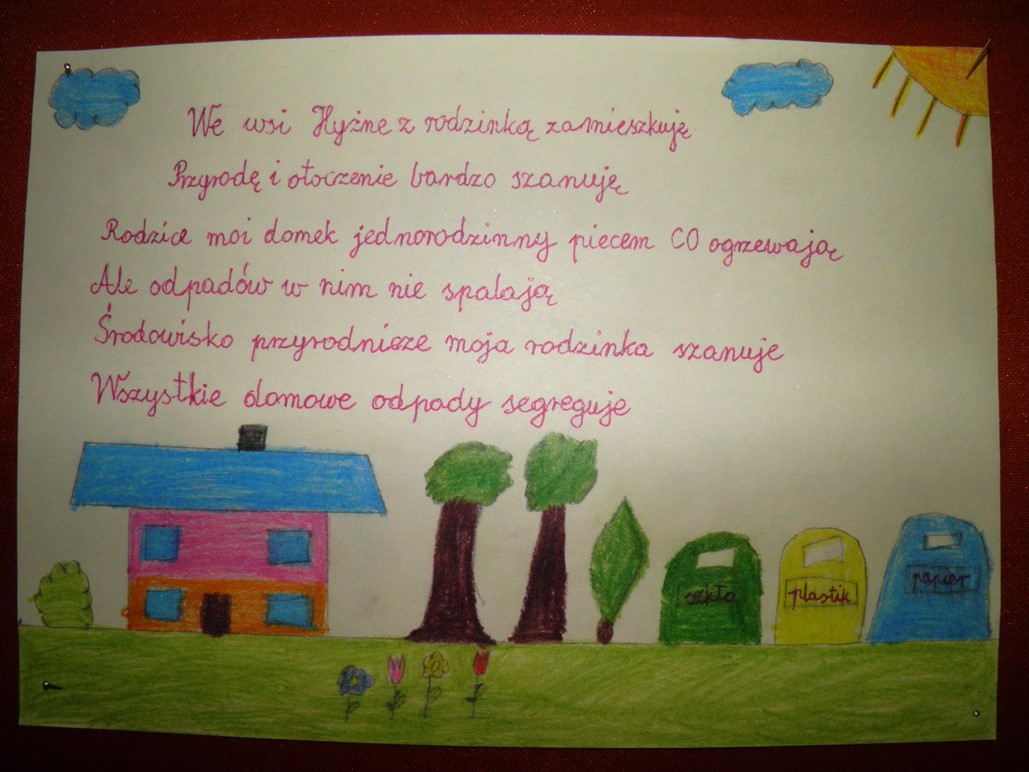 We wsi Hyżne z rodzinką zamieszkuję
Przyrodę i otoczenie bardzo szanuję
Rodzice moi domek jednorodzinny piecem CO ogrzewają
Ale odpadów w nim nie spalają
Środowisko przyrodnicze moja rodzinka szanuje
Wszystkie domowe odpady segreguje
szkło
plastik
papier